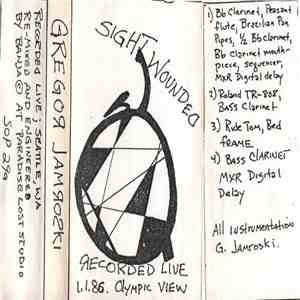 RECORDED LIVE: SEATTLE, WA
RE-MIXED AND ENGINEERED
BY BANJA© AT PARADISE LOST STUDIO
SOP 29a
GREGOR JAMROSKI
SIGHT WOUNDED
RECORDED LIVE
1.1.86. OLYMPIC VIEW
1) Bb Clarinet, Peasant
flute, Brazilian Pan
Pipes, 1/2 Bb Clarinet,
Bb Clarinet mouth-
piece, sequencer,
MXR Digital delay
2) Roland TR-808,
BASS Clarinet
3) Ride Tom, Bed
FRAME
4) BASS CLARINET
MXR Digital
Delay
All instrumentation
G. Jamroski.